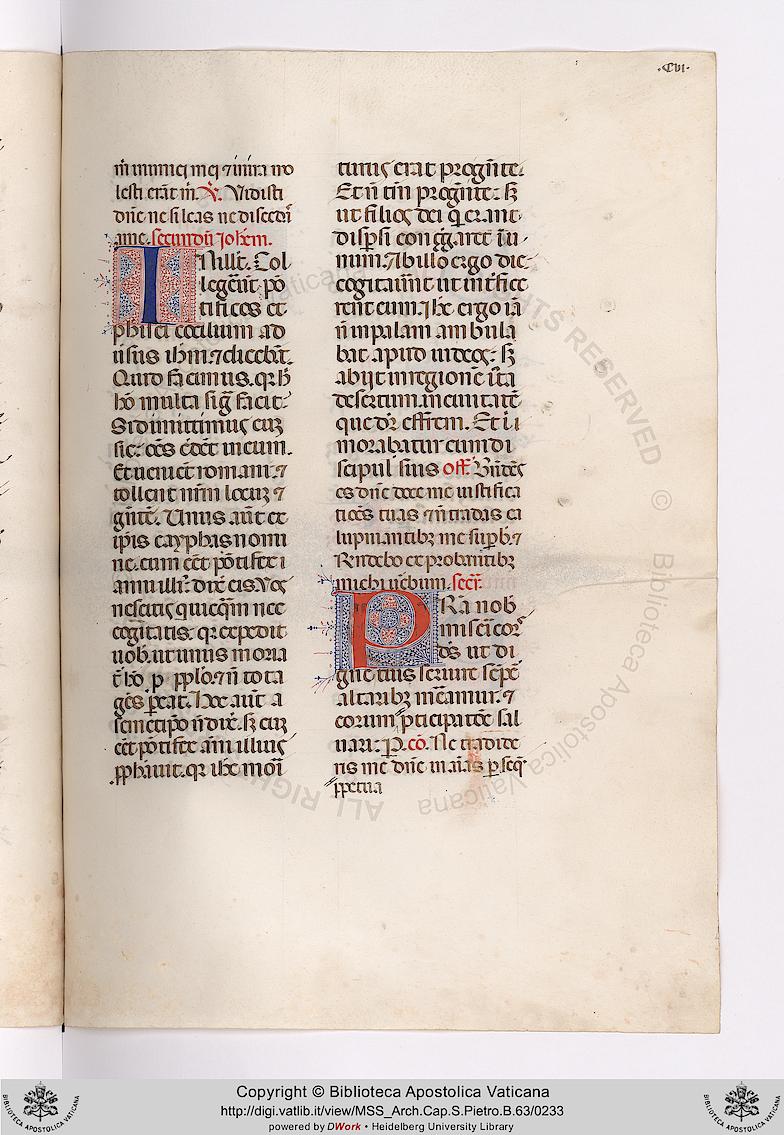 ·Cvi·
m̄ inimici mei ⁊ inira mo
lesti erāt m̄. ℣. Vidisti
dn̄e ne sileas ne discedas
a me. secundū Ioħem.
IN ill̄. t̄. Col
legerūt pō
tifices et
pharisei cōciliū ad
uersus iħm. ⁊ dicebāt.
Quid facimus. qr̄ ħ
hō multa sigā facit.
Si dimittimus eum
sic: oēs credēt in eum.
Et uenient romani. ⁊
tollent nr̄m locum ⁊
gentē. Unus aūt ex
ip̄is cayphas nomi
ne. cum eēt pōtifex
anni illiꝰ: dix̄ eis. Vos
nescitis quicq̄m nec
cogitatis. qr̄ expedit
uob. ut unus moria
t̄ hō ꝓ ppl̄o. ⁊ n̄ tota
gēs pereat. Hoc aūt a
semetip̄o n̄ dix̄. sꝫ cum
eēt pōtifex ān̄i illius
ꝓphauit. qr̄ iħc mori
turus erat pro gente.
Et n̄ tm̄ pro gente: sꝫ
ut filios dei q̄ erant
disp̄si congregaret in u
num. Ab illo ergo die
cogitauēnt ut int̄fice
rent eum. Iħc ergo iā
n̄ in palam ambula
bat apud iudeos: sꝫ
abijt in regionē iuxta
desertum. in ciuitatē
que dr̄ effrem. Et ibi
morabatur cum di
scipulis suis off̄. Bn̄dict'
es dn̄e doce me iustifica
tiōes tuas ⁊ n̄ tradas ca
lupniantibꝫ me supbꝭ. ⁊
Rn̄debo exprobantibꝫ
michi uerbum. secr̄.
PRa nob
misericors
dēs ut di
gne tuis seruire semp̄
altaribꝫ mereamur. ⁊
eorum pticipatiōe sal
uari: P. cō. Ne tradide
ris me dn̄e in aīas p̄seq̄
ꝓpetua
ALL RIGHTS RESERVED © Biblioteca Apostolica Vaticana
Copyright © Biblioteca Apostolica Vaticana
http://digi.vatlib.it/view/MSS_Arch.Cap.S.Pietro.B.63/0233
powered by DWork • Heidelberg University Library
BIBLIOTECA APOSTOLICA VATICANA
BIBLIOTECA APOSTOLICA VATICANA